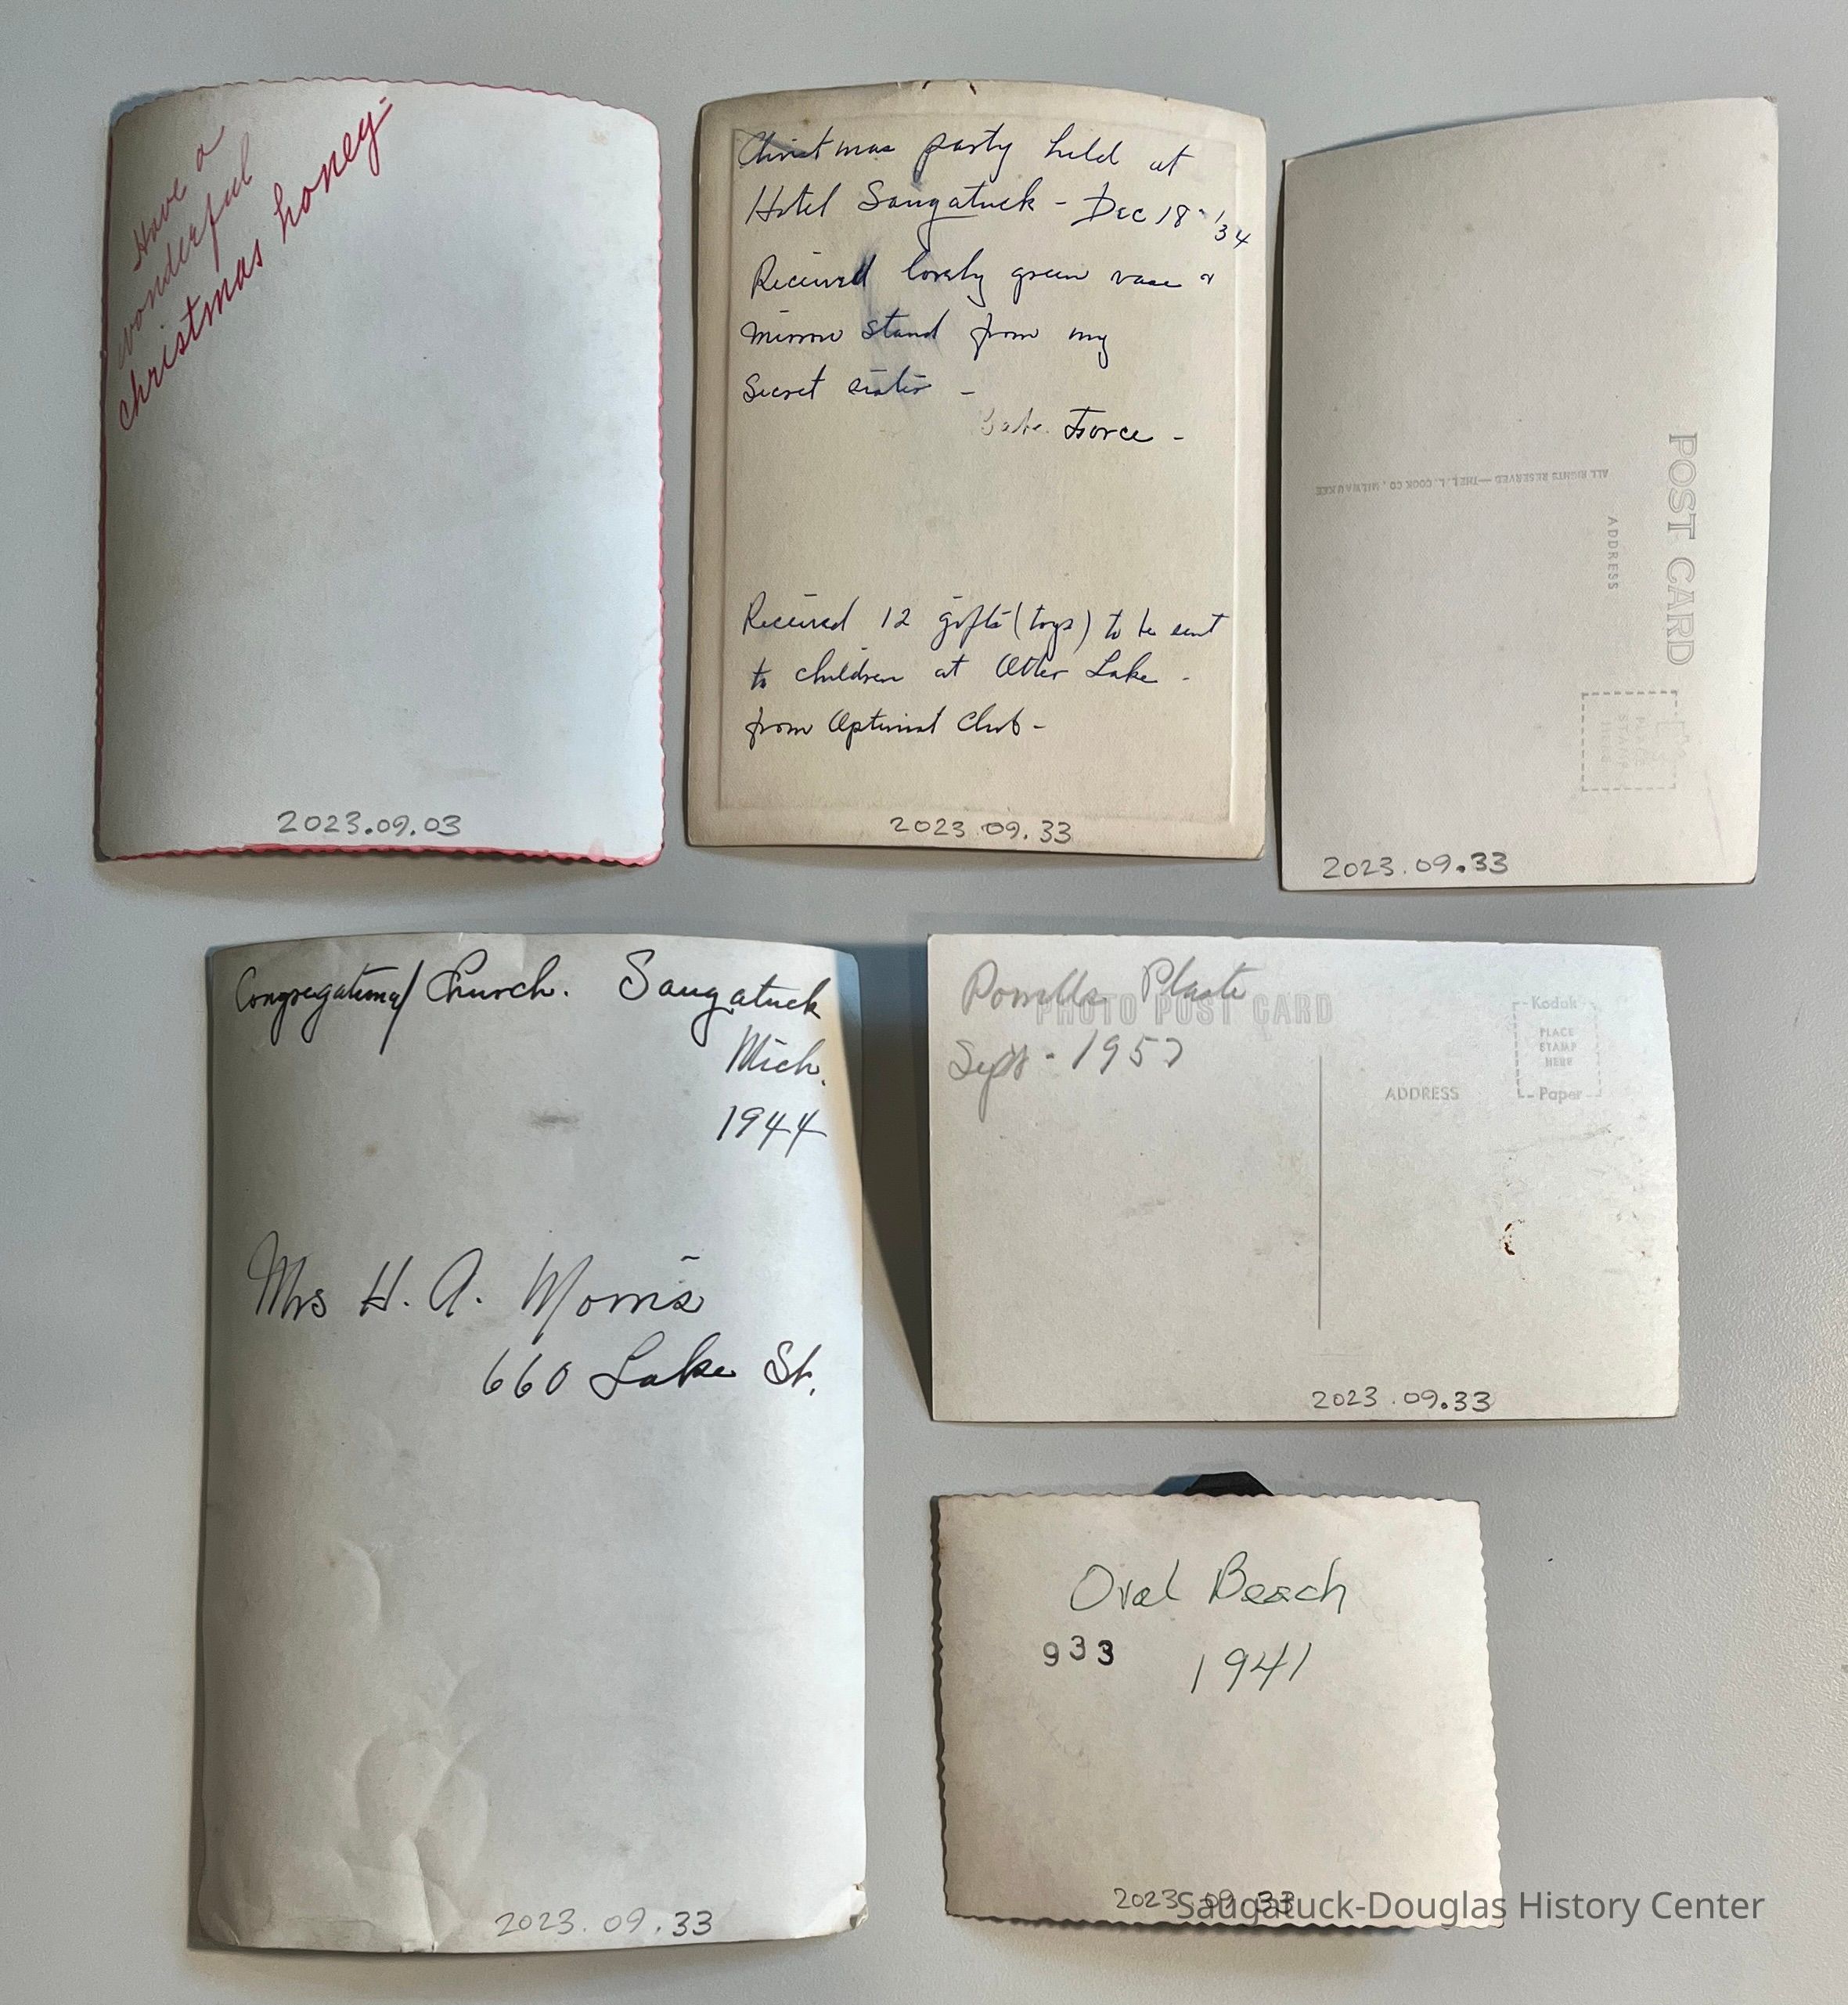 Have a
wonderful
christmas honey-
2023.09.03
Christmas party held at
Hotel Saugatuck - Dec 18 - '34
Received lovely green vase &
mirror stand from my
secret sister -
Force -
Received 12 gifts (toys) to be sent
to children at Otter Lake -
from Optimist Club -
2023.09.33
POST CARD
ADDRESS
ALL RIGHTS RESERVED—THE L. L. COOK CO., MILWAUKEE
PLACE
STAMP
HERE
2023.09.33
Congregational Church. Saugatuck
Mich.
1944
Mrs H. A. Morris
660 Lake St.
2023.09.33
Powells
PHOTO POST CARD
Sept - 1957
ADDRESS
Kodak
PLACE
STAMP
HERE
Paper
2023.09.33
Oval Beach
933 1941
2023.09.33
Saugatuck-Douglas History Center